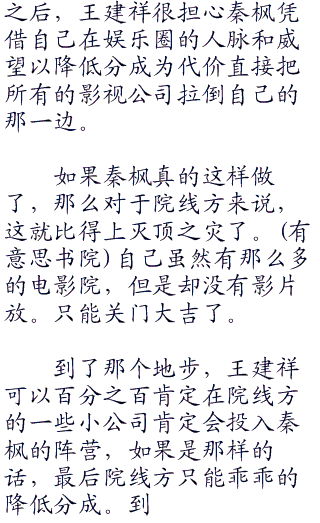 之后，王建祥很担心秦枫凭
借自己在娱乐圈的人脉和威
望以降低分成为代价直接把
所有的影视公司拉倒自己的
那一边。
如果秦枫真的这样做
了，那么对于院线方来说，
这就比得上灭顶之灾了。(有
意思书院)自己虽然有那么多
的电影院，但是却没有影片
放。只能关门大吉了。
到了那个地步，王建祥
可以百分之百肯定在院线方
的一些小公司肯定会投入秦
枫的阵营，如果是那样的
话，最后院线方只能乖乖的
降低分成。到